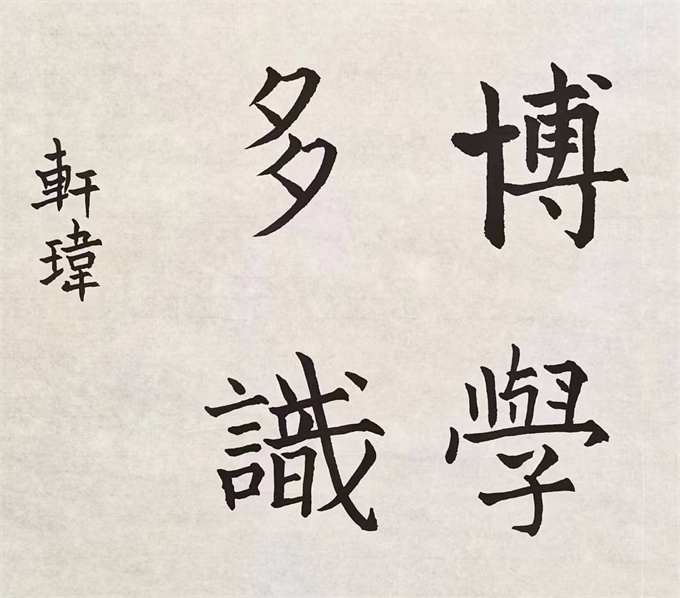 博學
多識
軒瑋